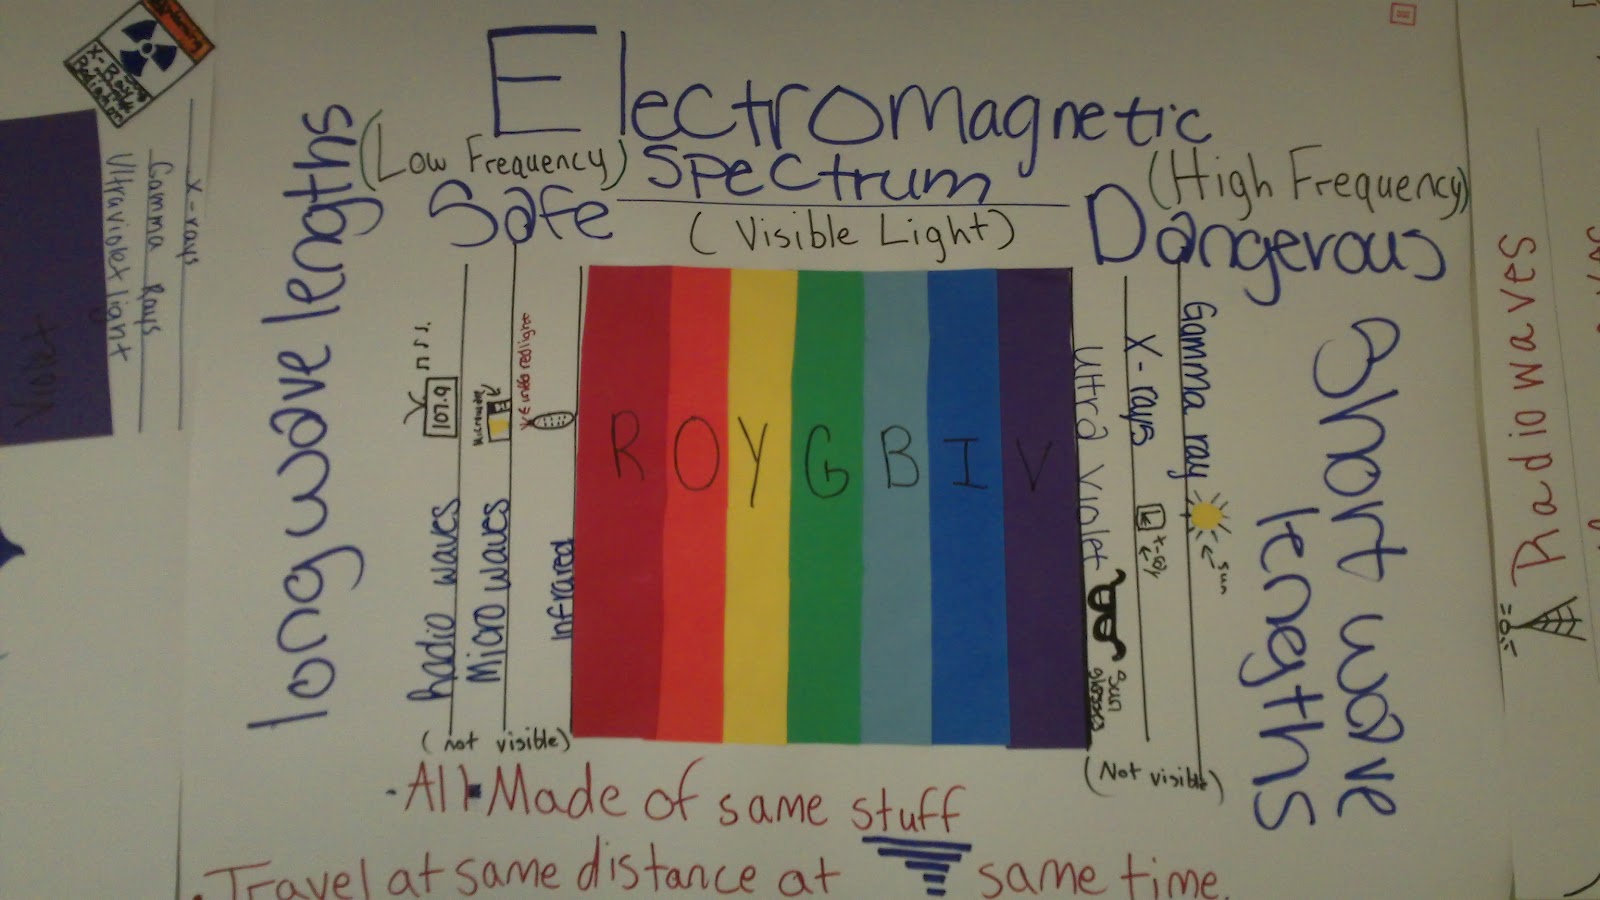 Electromagnetic
Spectrum
(Visible Light)
(Low Frequency)
Safe
(High Frequency)
Dangerous
long wave lengths
Short wave
lengths
radio waves
107.9
Micro waves
Infrared
(not visible)
R O Y G B I V
Ultra violet
Sun
glasses
X-rays
x-ray
Gamma ray
sun
(Not visible)
- All Made of same stuff
. Travel at same distance at same time.
X-Ray
X-rays
Gamma Rays
Ultraviolet light
Violet
Radio waves